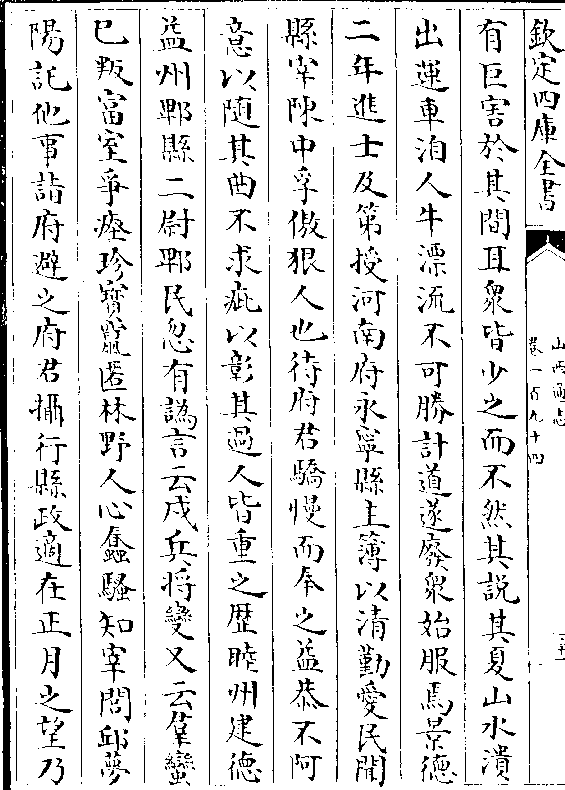 欽定四庫全書
山西通志
卷一百九十四
有巨害於其間耳衆皆少之而不然其說其夏山水潰
出運車洎人牛漂流不可勝計道遂廢衆始服焉景德
二年進士及第授河南府永寧縣主簿以清勤愛民聞
縣宰陳中孚傲狠人也待府君驕慢而奉之益恭不阿
意以隨其曲不求疵以彰其過人皆重之歷睦州建德
益州郫縣二尉郫民忽有譌言云戍兵將變又云羣蠻
已叛富室爭瘞珍寶竄匿林野人心蠢騷知宰閭邱夢
陽託他事詣府避之府君攝行縣政適在正月之望乃